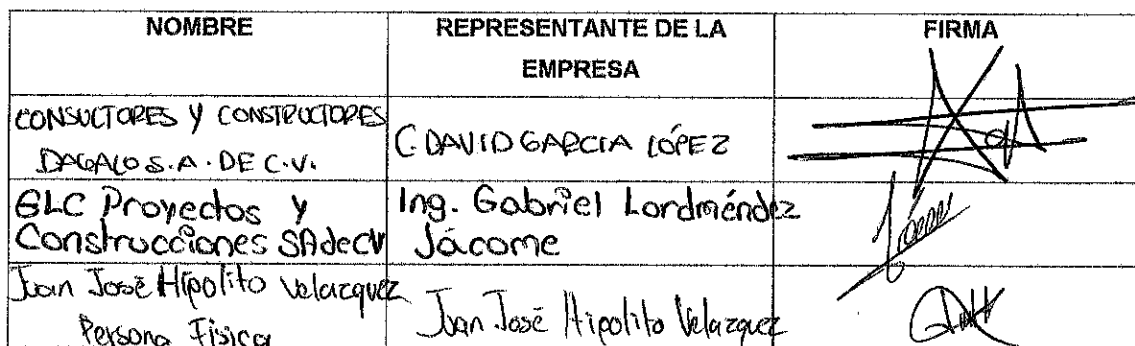 NOMBRE
REPRESENTANTE DE LA
EMPRESA
FIRMA
CONSULTORES Y CONSTRUCTORES
DAGALO S.A. DE C.V.
C. DAVID GARCIA LÓPEZ
GLC Proyectos y
Construcciones SAdeCV
Ing. Gabriel Lordméndez
Jácome
Juan José Hipolito Velazquez
Persona Fisica
Juan José Hipolito Velazquez